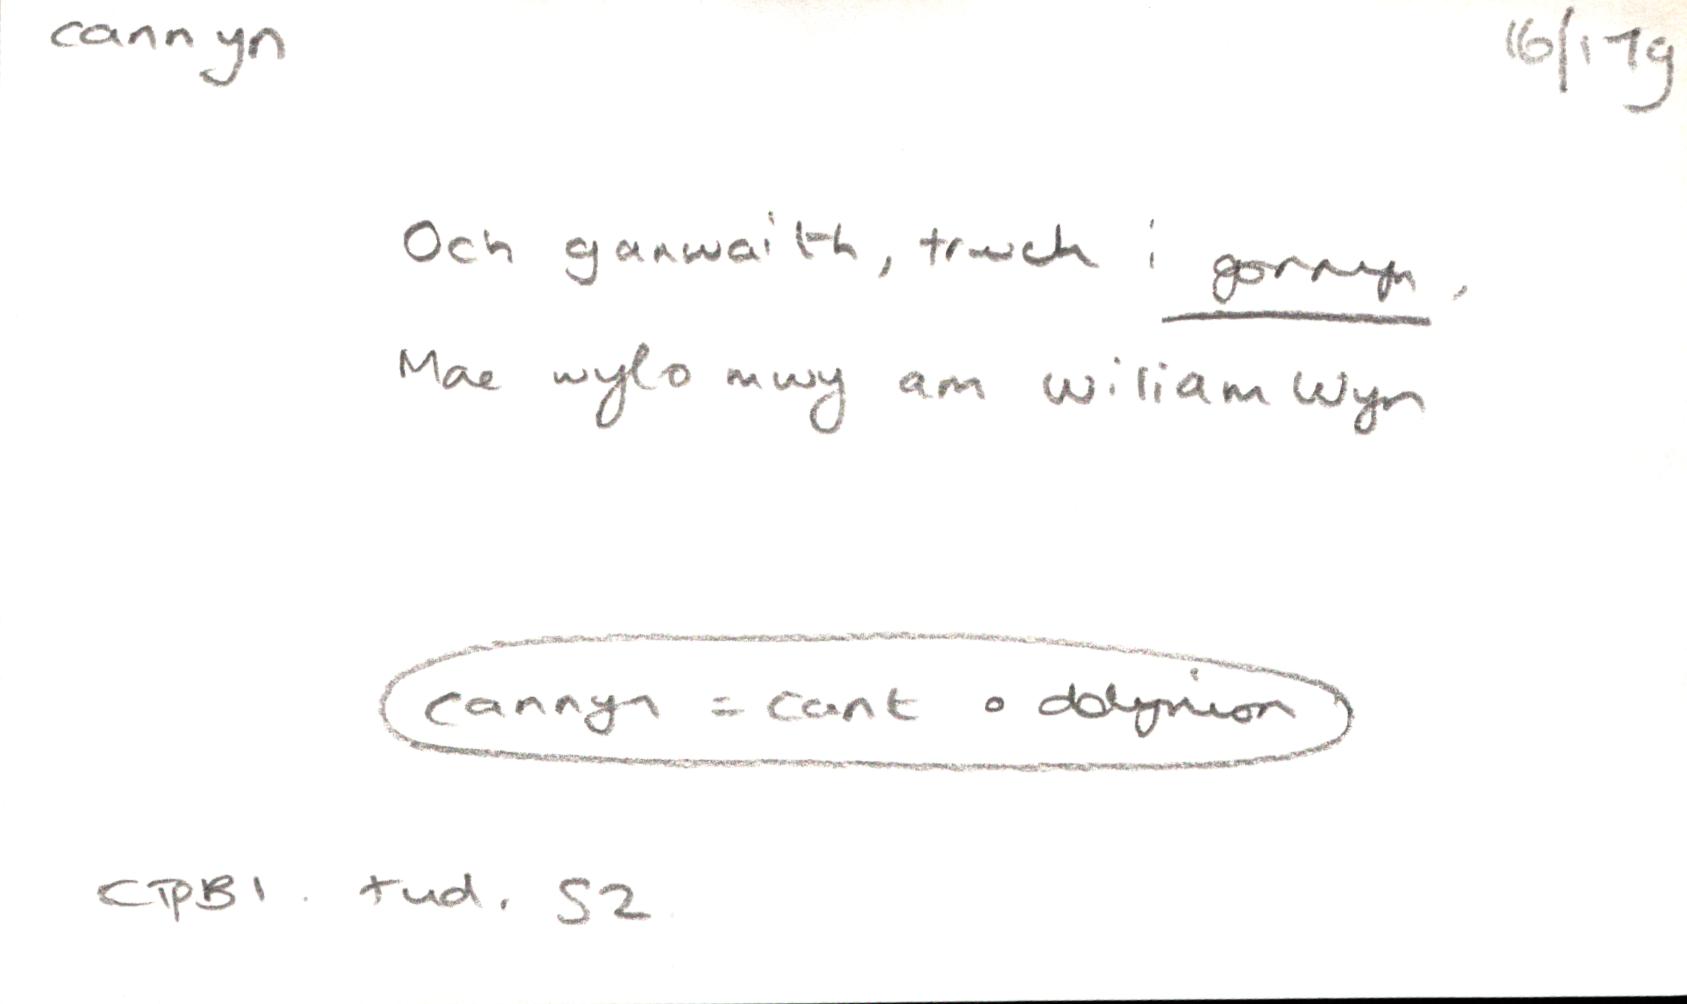 cannyn 16/17g
Och ganwaith, trwch i gonnyn,
Mae wylo mwy am wiliam Wyn
cannyn = cant o ddynion
CTPB1. tud. 52